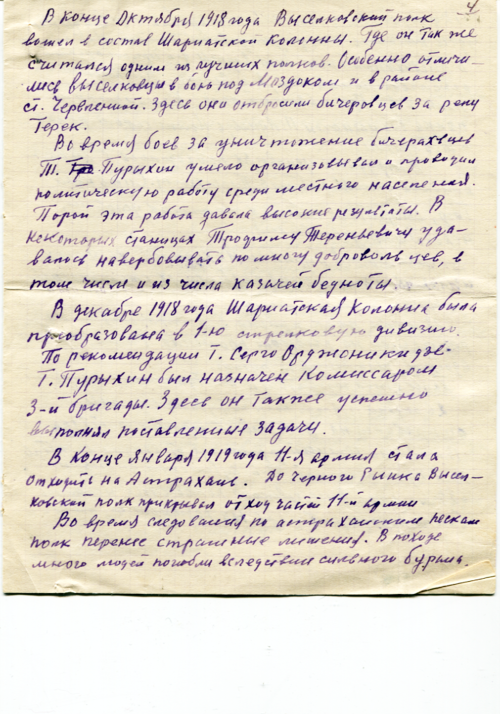 4
В конце Октября 1918 года Выселковский полк
вошел в состав Шариатской Колонны. Где он так же
считался одним из лучших полков. Особенно отличи-
лись Выселковцы в боях под Моздоком и в районе
ст. Червленной. Здесь они отбросили бичеровцев за реку
Терек.
Во время боев за уничтожение бичераховцев
Т. Пурыхин умело организовывал и проводил
политическую работу среди местного населения.
Порой эта работа давала высокие результаты. В
некоторых станицах Трофиму Терентьевичу уда-
валось навербовывать по многу добровольцев, в
том числе и из числа казачей бедноты
В декабре 1918 года Шариатская Колонна была
преобразована в 1-ю стрелковую дивизию.
По рекомендации Т. Серго Орджоникидзе-
Т. Пурыхин был назначен Комиссаром
3-й бригады. Здесь он также успешно
выполнял поставленные задачи.
В конце января 1919 года 11-я армия стала
отходить на Астрахань. До Черного Рынка Высел-
ковский полк прикрывал отход частей 11-й армии
Во время следования по астраханским пескам
полк перенес страшные лишения. В походе
много людей погибли вследствие сильного бурана.